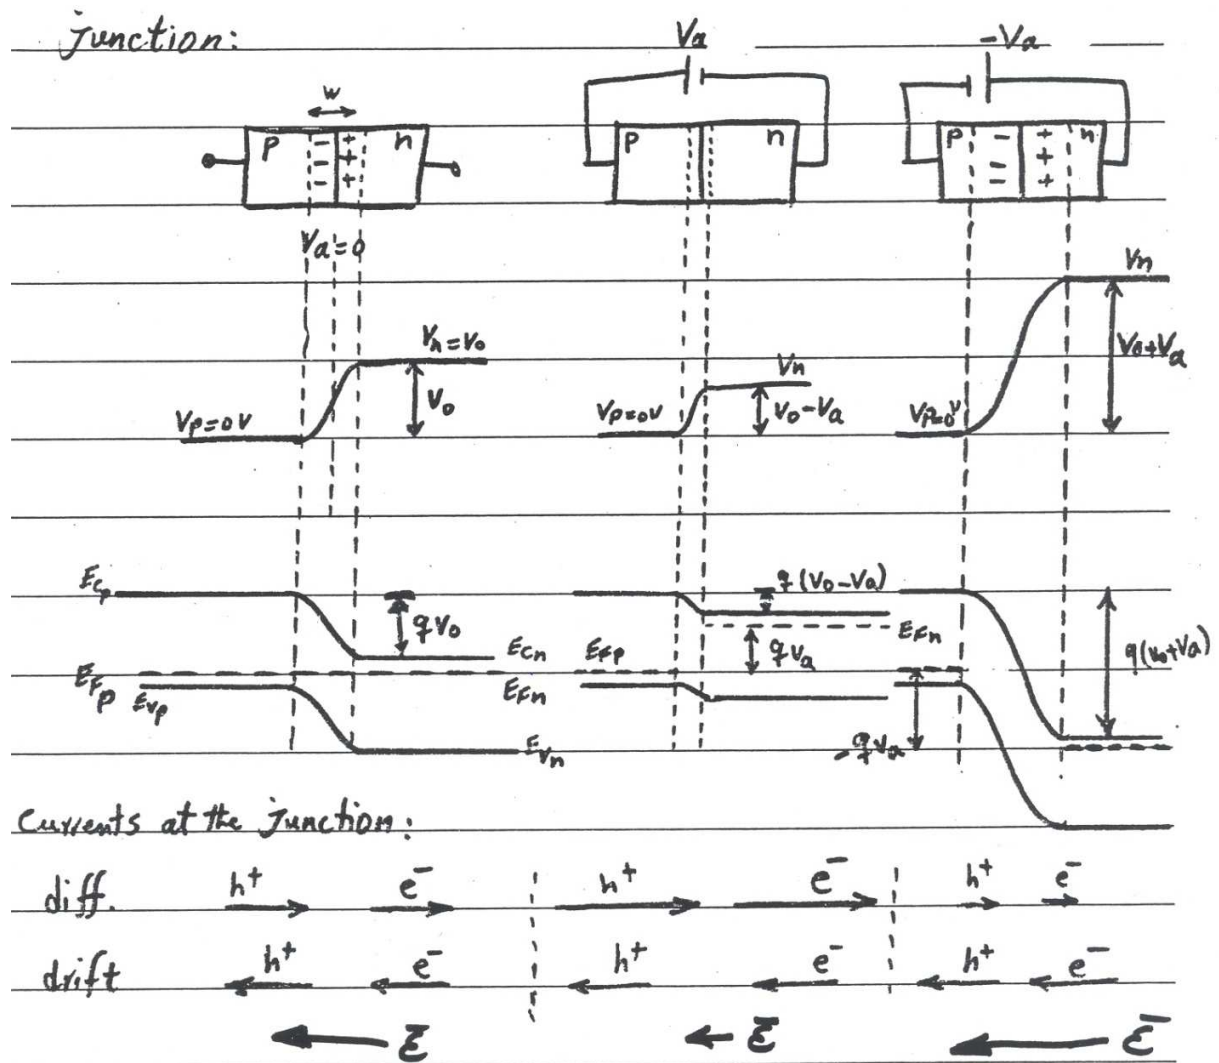 junction:
Va
-Va
w
p - + n
- +
- +
p n
p - + n
- +
- +
Va=0
Vn=Vo
Vo
Vp=0V
Vn
Vo-Va
Vp=0V
Vn
Vo+Va
Vp=0V
Ecp
qVo
Ecn
EFp
Evp
EFn
Evn
q(Vo-Va)
EFn
EFp
qVa
q(Vo+Va)
-qVa
Currents at the junction:
diff. h+ e- h+ e- h+ e-
drift h+ e- h+ e- h+ e-
Ē Ē Ē